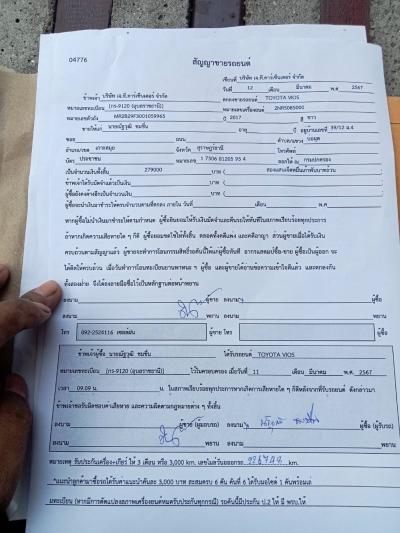 04776
สัญญาขายรถยนต์
เขียนที่ บริษัท เอ.ที.คาร์เซ็นเตอร์ จำกัด
วันที่ 12 เดือน มีนาคม พ.ศ. 2567
ข้าพเจ้า บริษัท เอ.ที.คาร์เซ็นเตอร์ จำกัด ตกลงขายรถยนต์ TOYOTA VIOS
หมายเลขทะเบียน (กร-9120 (อุบลราชธานี)) หมายเลขเครื่องยนต์
หมายเลขตัวถัง ปี 2017 สี ขาว
ขายให้แก่ นายณัฐวุฒิ อายุ ปี อยู่บ้านเลขที่ 39/12 ม.4
ซอย ถนน ตำบล/แขวง
อำเภอ/เขต จังหวัด สุราษฎร์ธานี โทรศัพท์
บัตร ประชาชน หมายเลข ออกให้ ณ กรมปกครอง
เป็นจำนวนเงินทั้งสิ้น 279000 บาท ( สองแสนเจ็ดหมื่นเก้าพันบาทถ้วน )
ข้าพเจ้าได้รับมัดจำแล้วเป็นเงิน บาท ( )
ผู้ซื้อยังคงค้างอีกเป็นจำนวนเงิน บาท ( )
ผู้ซื้อจะนำเงินมาชำระให้ครบจำนวนตามที่ตกลง ภายใน วันที่ เดือน พ.ศ.
หากผู้ซื้อไม่นำเงินมาชำระให้ตามกำหนด ผู้ซื้อยินยอมให้ริบเงินมัดจำและคืนรถให้ทันทีในสภาพเรียบร้อยทุกประการ
ถ้าหากเกิดความเสียหายใด ๆ ก็ดี ผู้ซื้อยอมชดใช้ให้ทั้งสิ้น ตลอดทั้งคดีแพ่ง และคดีอาญา ส่วนผู้ขายเมื่อได้รับเงิน
ครบถ้วนตามสัญญาแล้ว ผู้ขายจะทำการโอนกรรมสิทธิ์รถคันนี้ให้แก่ผู้ซื้อทันที
ได้คิดให้ครบถ้วน เมื่อวันทำการโอนทะเบียนยานพาหนะ ฯ ผู้ซื้อ และผู้ขายได้อ่านข้อความเข้าใจดีแล้ว และตกลงกัน
ทั้งสองฝ่าย จึงได้ลงลายมือชื่อไว้เป็นหลักฐานต่อหน้าพยาน
ลงนาม ผู้ขาย ลงนาม ผู้ซื้อ
ลงนาม พยาน ลงนาม พยาน
โทร 092-2524116 เซลล์ฝน ผู้ขาย โทร ผู้ซื้อ
ข้าพเจ้าผู้ซื้อ นายณัฐวุฒิ ได้รับรถยนต์ TOYOTA VIOS
หมายเลขทะเบียน (กร-9120 (อุบลราชธานี)) ไว้ในครอบครอง เมื่อวันที่ 11 เดือน มีนาคม พ.ศ. 2567
เวลา 09.09 น. น. ในสภาพเรียบร้อยทุกประการหากเกิดการเสียหายใด ๆ ก็ดีหลังจากที่รับรถยนต์ ดังกล่าวมา
ข้าพเจ้าขอรับผิดชอบค่าเสียหาย และความผิดตามกฎหมายต่าง ๆ ทั้งสิ้น
ลงนาม ผู้ขาย (ผู้มอบรถ) ลงนาม ผู้ซื้อ (ผู้รับรถ)
ลงนาม พยาน ลงนาม พยาน
หมายเหตุ รับประกันเครื่อง+เกียร์ ให้ 3 เดือน หรือ 3,000 km. เลขไมล์วันออกรถ km.
*แนะนำลูกค้ามาซื้อรถได้รับค่าแนะนำคันละ 3,000 บาท สะสมครบ 6 คัน คันที่ 6 ได้รับมอไซค์ 1 คันพร้อมเล่
มทะเบียน (หากมีการดัดแปลงสภาพเครื่องยนต์หมดรับประกันทุกกรณี) รถคันนี้มีประกัน ป.2 ให้ มี พรบ.ให้